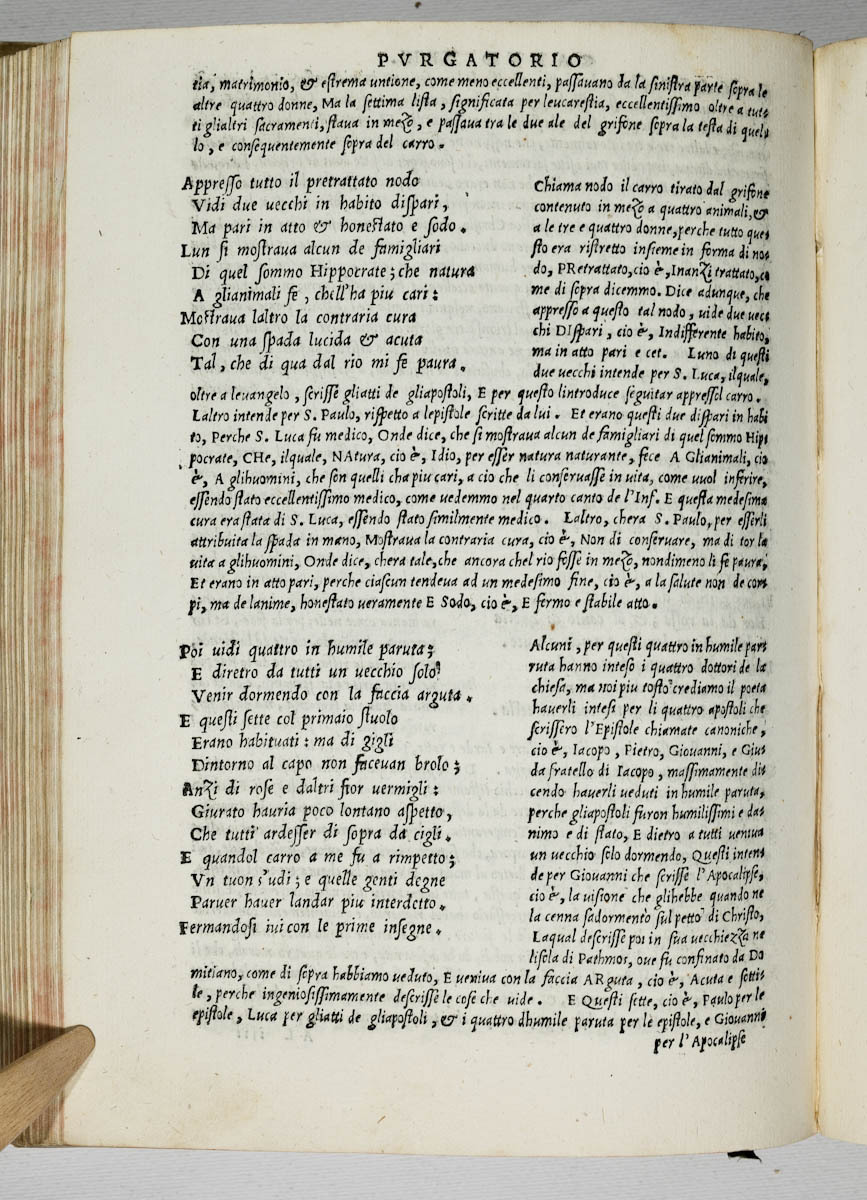 PVRGATORIO
tia, matrimonio, & estrema untione, come meno eccellenti, passauano da la sinistra parte sopra le
altre quattro donne, Ma la settima lista, significata per leucarestia, eccellentissimo oltre a tut-
ti glialtri sacramenti, staua in mezo, e passaua tra le due ale del grifone sopra la testa di quel-
lo, e consequentemente sopra del carro.
Appresso tutto il pretrattato nodo
Vidi due uecchi in habito dispari,
Ma pari in atto & honestato e sodo.
Lun si mostraua alcun de famigliari
Di quel sommo Hippocrate; che natura
A glianimali fe, chell'ha piu cari:
Mostraua laltro la contraria cura
Con una spada lucida & acuta
Tal, che di qua dal rio mi fe paura.
Chiama nodo il carro tirato dal grifone
contenuto in mezo a quattro animali, &
a le tre e quattro donne, perche tutto que-
sto era ristretto insieme in forma di no-
do, PRetrattato, cio è, Inanzi trattato, co
me di sopra dicemmo. Dice adunque, che
appresso a questo tal nodo, uide due uec-
chi DIspari, cio è, Indifferente habito,
ma in atto pari e cet. Luno di questi
due uecchi intende per S. Luca, ilquale,
oltre a leuangelo, scrisse gliatti de gliapostoli, E per questo lintroduce seguitar appressol carro.
Laltro intende per S. Paulo, rispetto a lepistole scritte da lui. Et erano questi due dispari in habi
to, Perche S. Luca fu medico, Onde dice, che si mostraua alcun de famigliari di quel sommo Hip-
pocrate, CHe, ilquale, NAtura, cio è, Idio, per esser natura naturante, fece A Glianimali, cio
è, A glihuomini, che son quelli cha piu cari, a cio che li conseruasse in uita, come uuol inferire,
essendo stato eccellentissimo medico, come uedemmo nel quarto canto de l'Inf. E questa medesima
cura era stata di S. Luca, essendo stato similmente medico. Laltro, chera S. Paulo, per esserli
attribuita la spada in mano, Mostraua la contraria cura, cio è, Non di conseruare, ma di tor la
uita a glihuomini, Onde dice, chera tale, che ancora chel rio fosse in mezo, nondimeno li fe paura,
Et erano in atto pari, perche ciascun tendeua ad un medesimo fine, cio è, a la salute non de cor-
pi, ma de lanime, honestato ueramente E Sodo, cio è, E fermo e stabile atto.
Poi uidi quattro in humile paruta;
E diretro da tutti un uecchio solo
Venir dormendo con la faccia arguta.
E questi sette col primaio stuolo
Erano habituati: ma di gigli
Dintorno al capo non faceuan brolo;
Anzi di rose e daltri fior uermigli:
Giurato hauria poco lontano aspetto,
Che tutti ardesser di sopra da cigli.
E quandol carro a me fu a rimpetto;
Vn tuon s'udi; e quelle genti degne
Paruer hauer landar piu interdetto.
Fermandosi iui con le prime insegne.
Alcuni, per questi quattro in humile pa-
ruta hanno inteso i quattro dottori de la
chiesa, ma noi piu tosto crediamo il poeta
hauerli intesi per li quattro apostoli che
scrissero l'Epistole chiamate canoniche,
cio è, Iacopo, Pietro, Giouanni, e Giu-
da fratello di Iacopo, massimamente di-
cendo hauerli ueduti in humile paruta,
perche gliapostoli furon humilissimi e da-
nimo e di stato, E dietro a tutti ueniua
un uecchio solo dormendo, Questi inten-
de per Giouanni che scrisse l'Apocalipse,
cio è, la uisione che glihebbe quando ne
la cenna sadormento sul petto di Christo,
Laqual descrisse poi in sua uecchiezza ne
lisola di Pathmos, oue fu confinato da Do
mitiano, come di sopra habbiamo ueduto, E ueniua con la faccia ARguta, cio è, Acuta e sotti-
le, perche ingeniosissimamente descrisse le cose che uide. E Questi sette, cio è, Paulo per le
epistole, Luca per gliatti de gliapostoli, & i quattro dhumile paruta per le epistole, e Giouanni
per l'Apocalipse